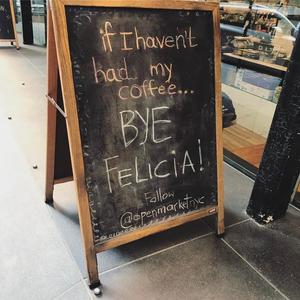 if I haven't
had my
coffee...
BYE
FELICIA!
Follow
@openmarketnyc